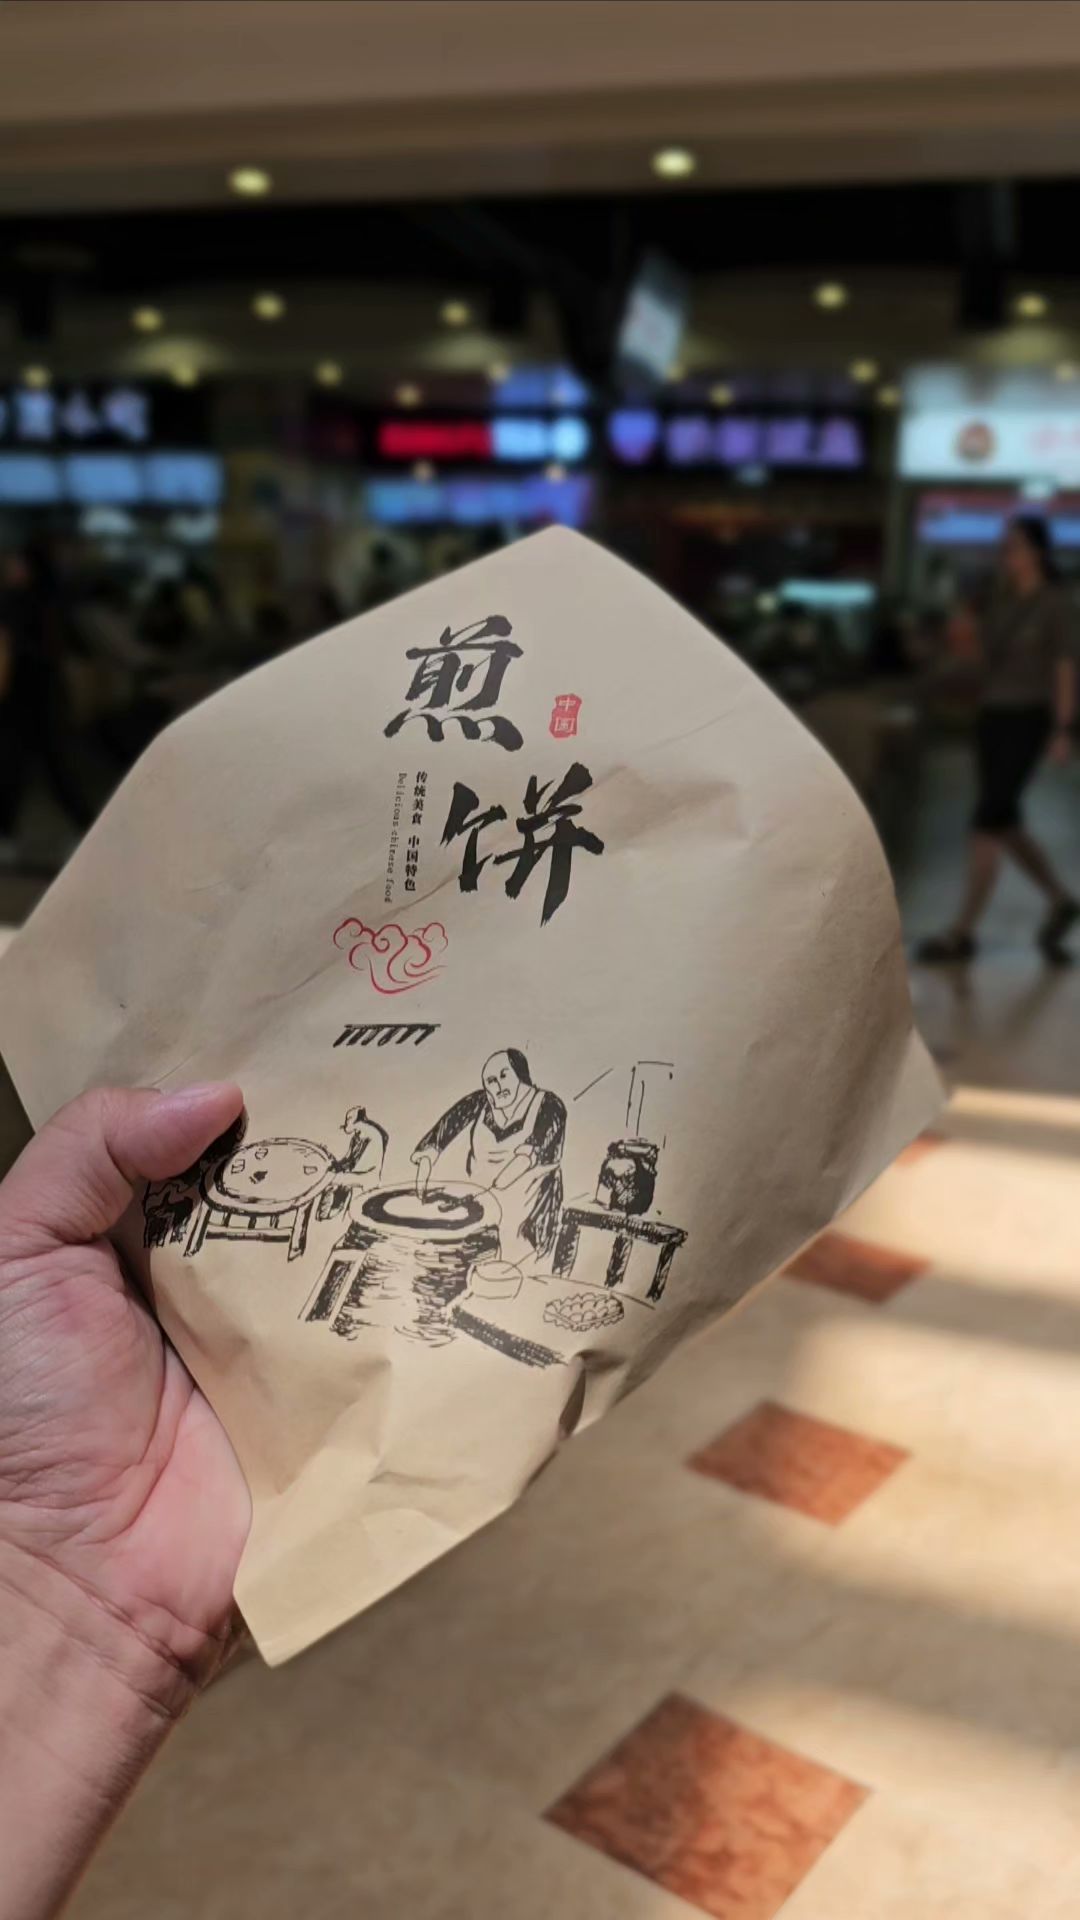 煎饼
中国
传统美食 中国特色
Delicious chinese food